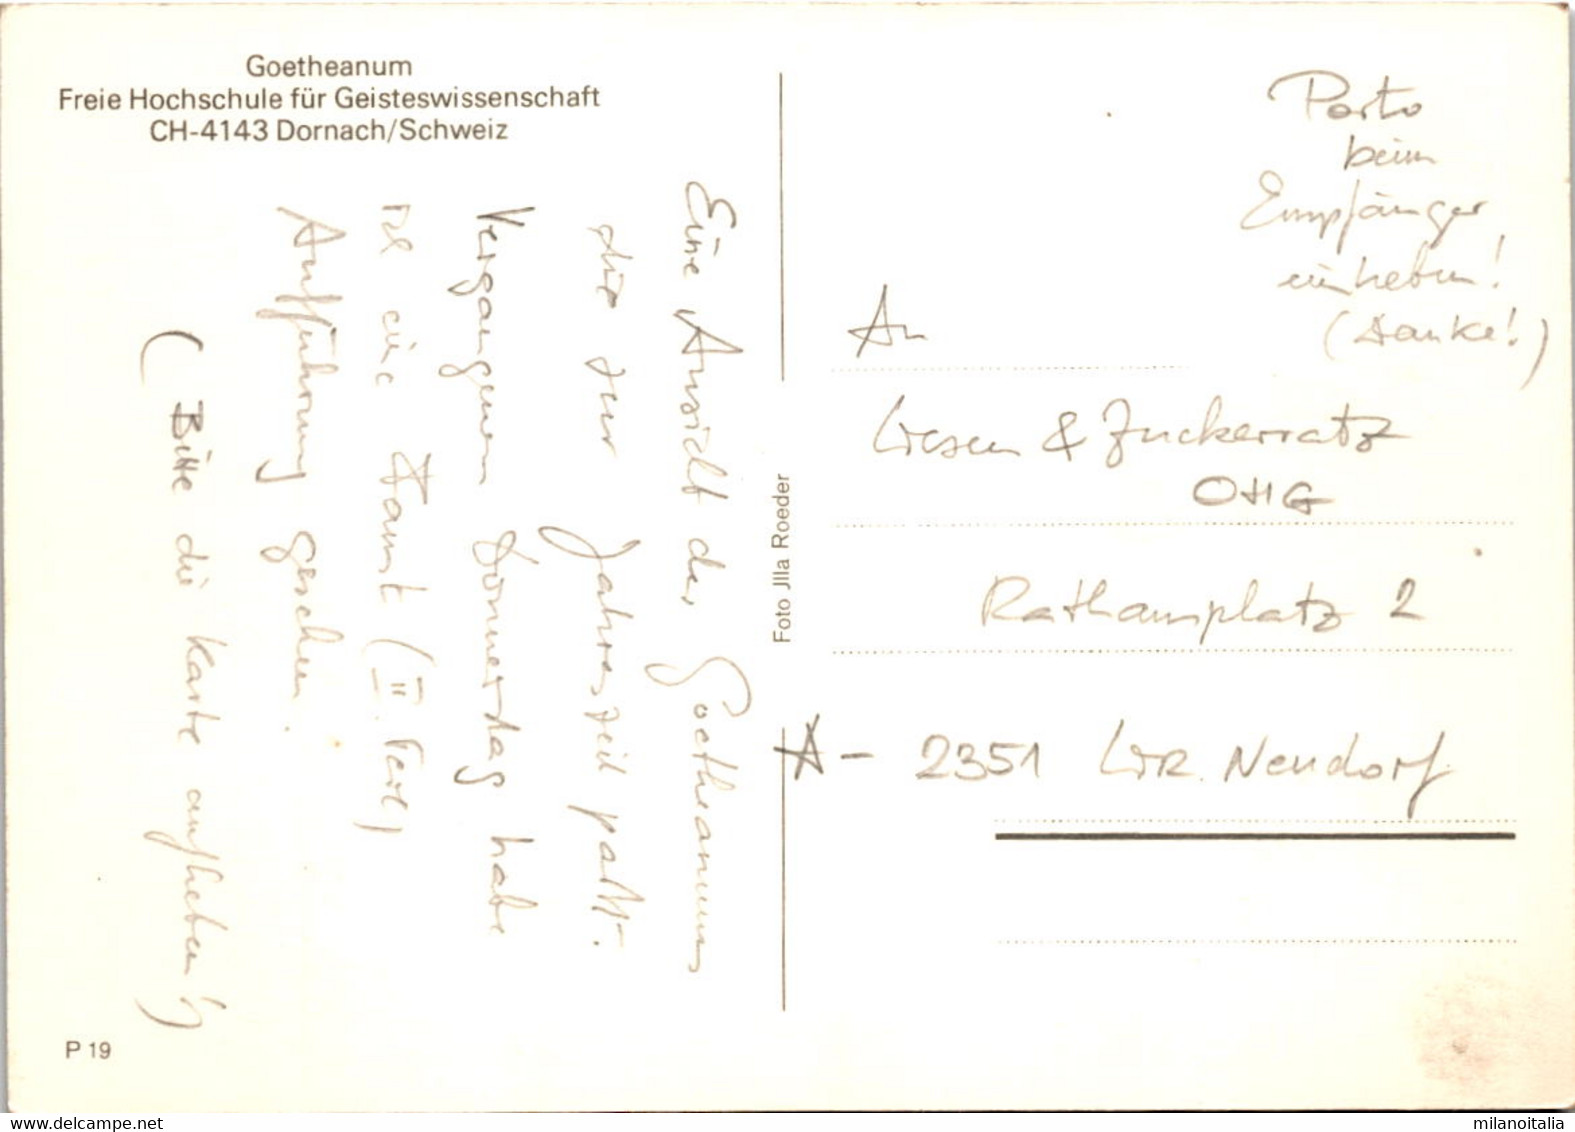 Goetheanum
Freie Hochschule für Geisteswissenschaft
CH-4143 Dornach/Schweiz
Eine Ansicht des Goetheanums
die zur Jahreszeit paßt.
Vergangenen Donnerstag habe
ich eine Faust (II. Teil)
Aufführung gesehen.
(Bitte die Karte aufheben!)
P 19
Foto Jlla Roeder
Porto
beim
Empfänger
einheben!
(Danke!)
An
& Zuckerratz
OHG
Rathausplatz 2
A - 2351 Wr. Neudorf
delcampe.net
milanoitalia